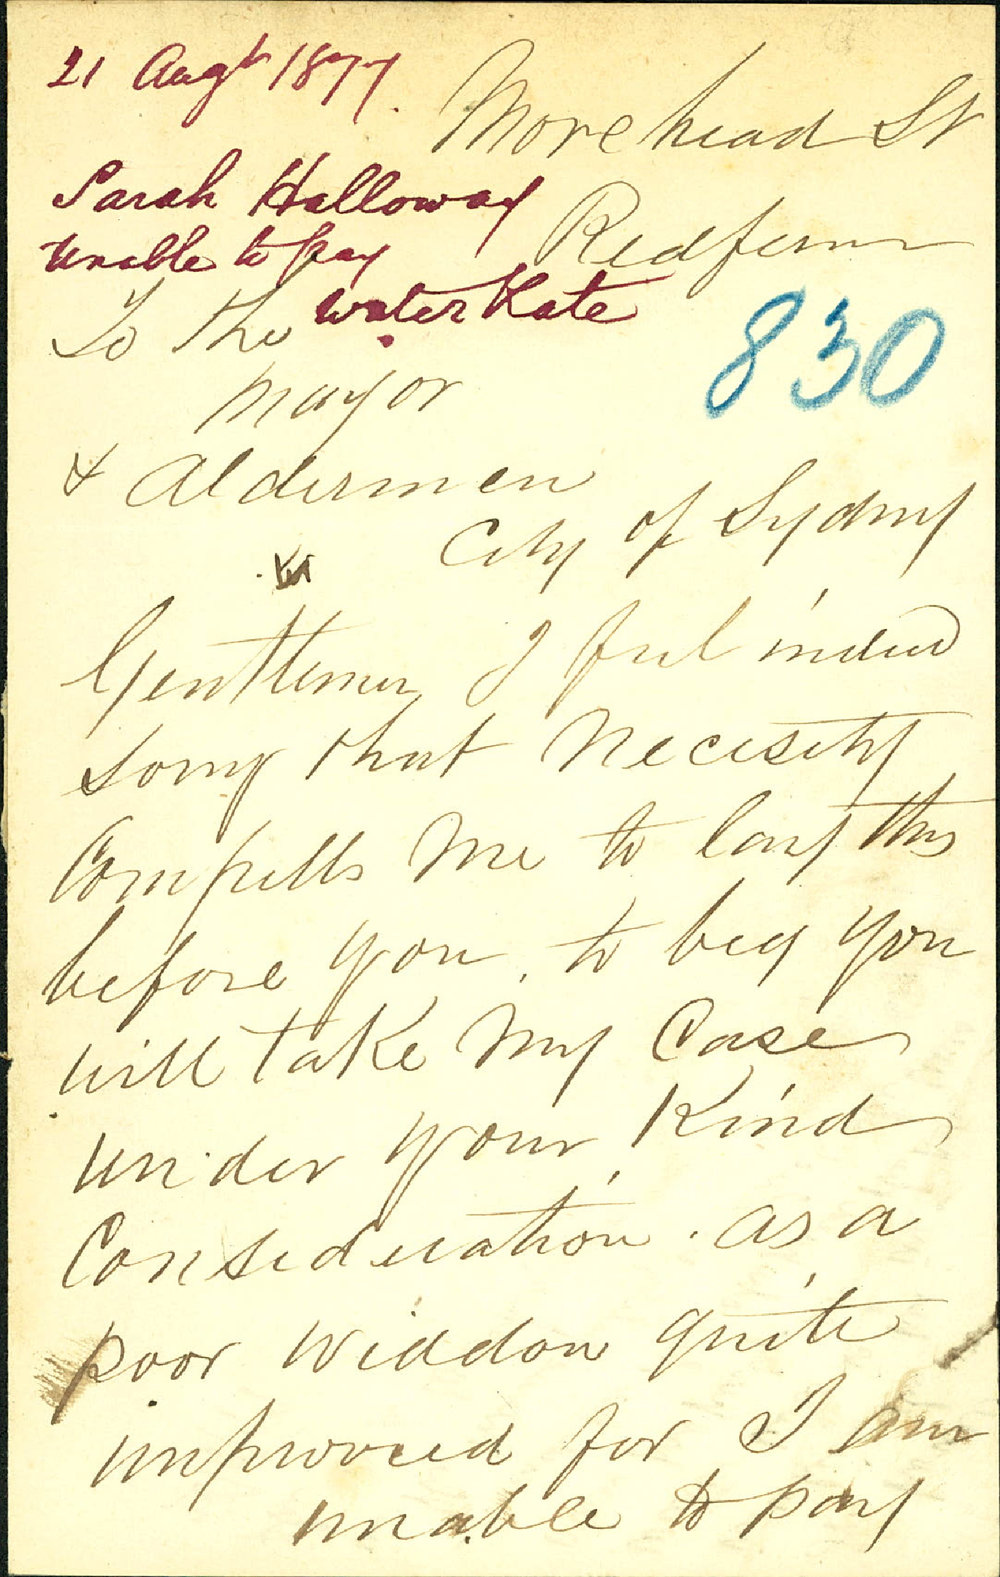 21 Augt 1877.
Morehead St
Sarah Holloway
Redfern
unable to pay
water Rate
To the
830
Mayor
& Aldermen
City of Sydny
Gentlemen I feel indeed
sorry that Necesity
Compells Me to lay this
before you. to beg you
will take My Case
under your Kind
Consideration. as a
poor widdow quite
unproveed for I am
unable to pay